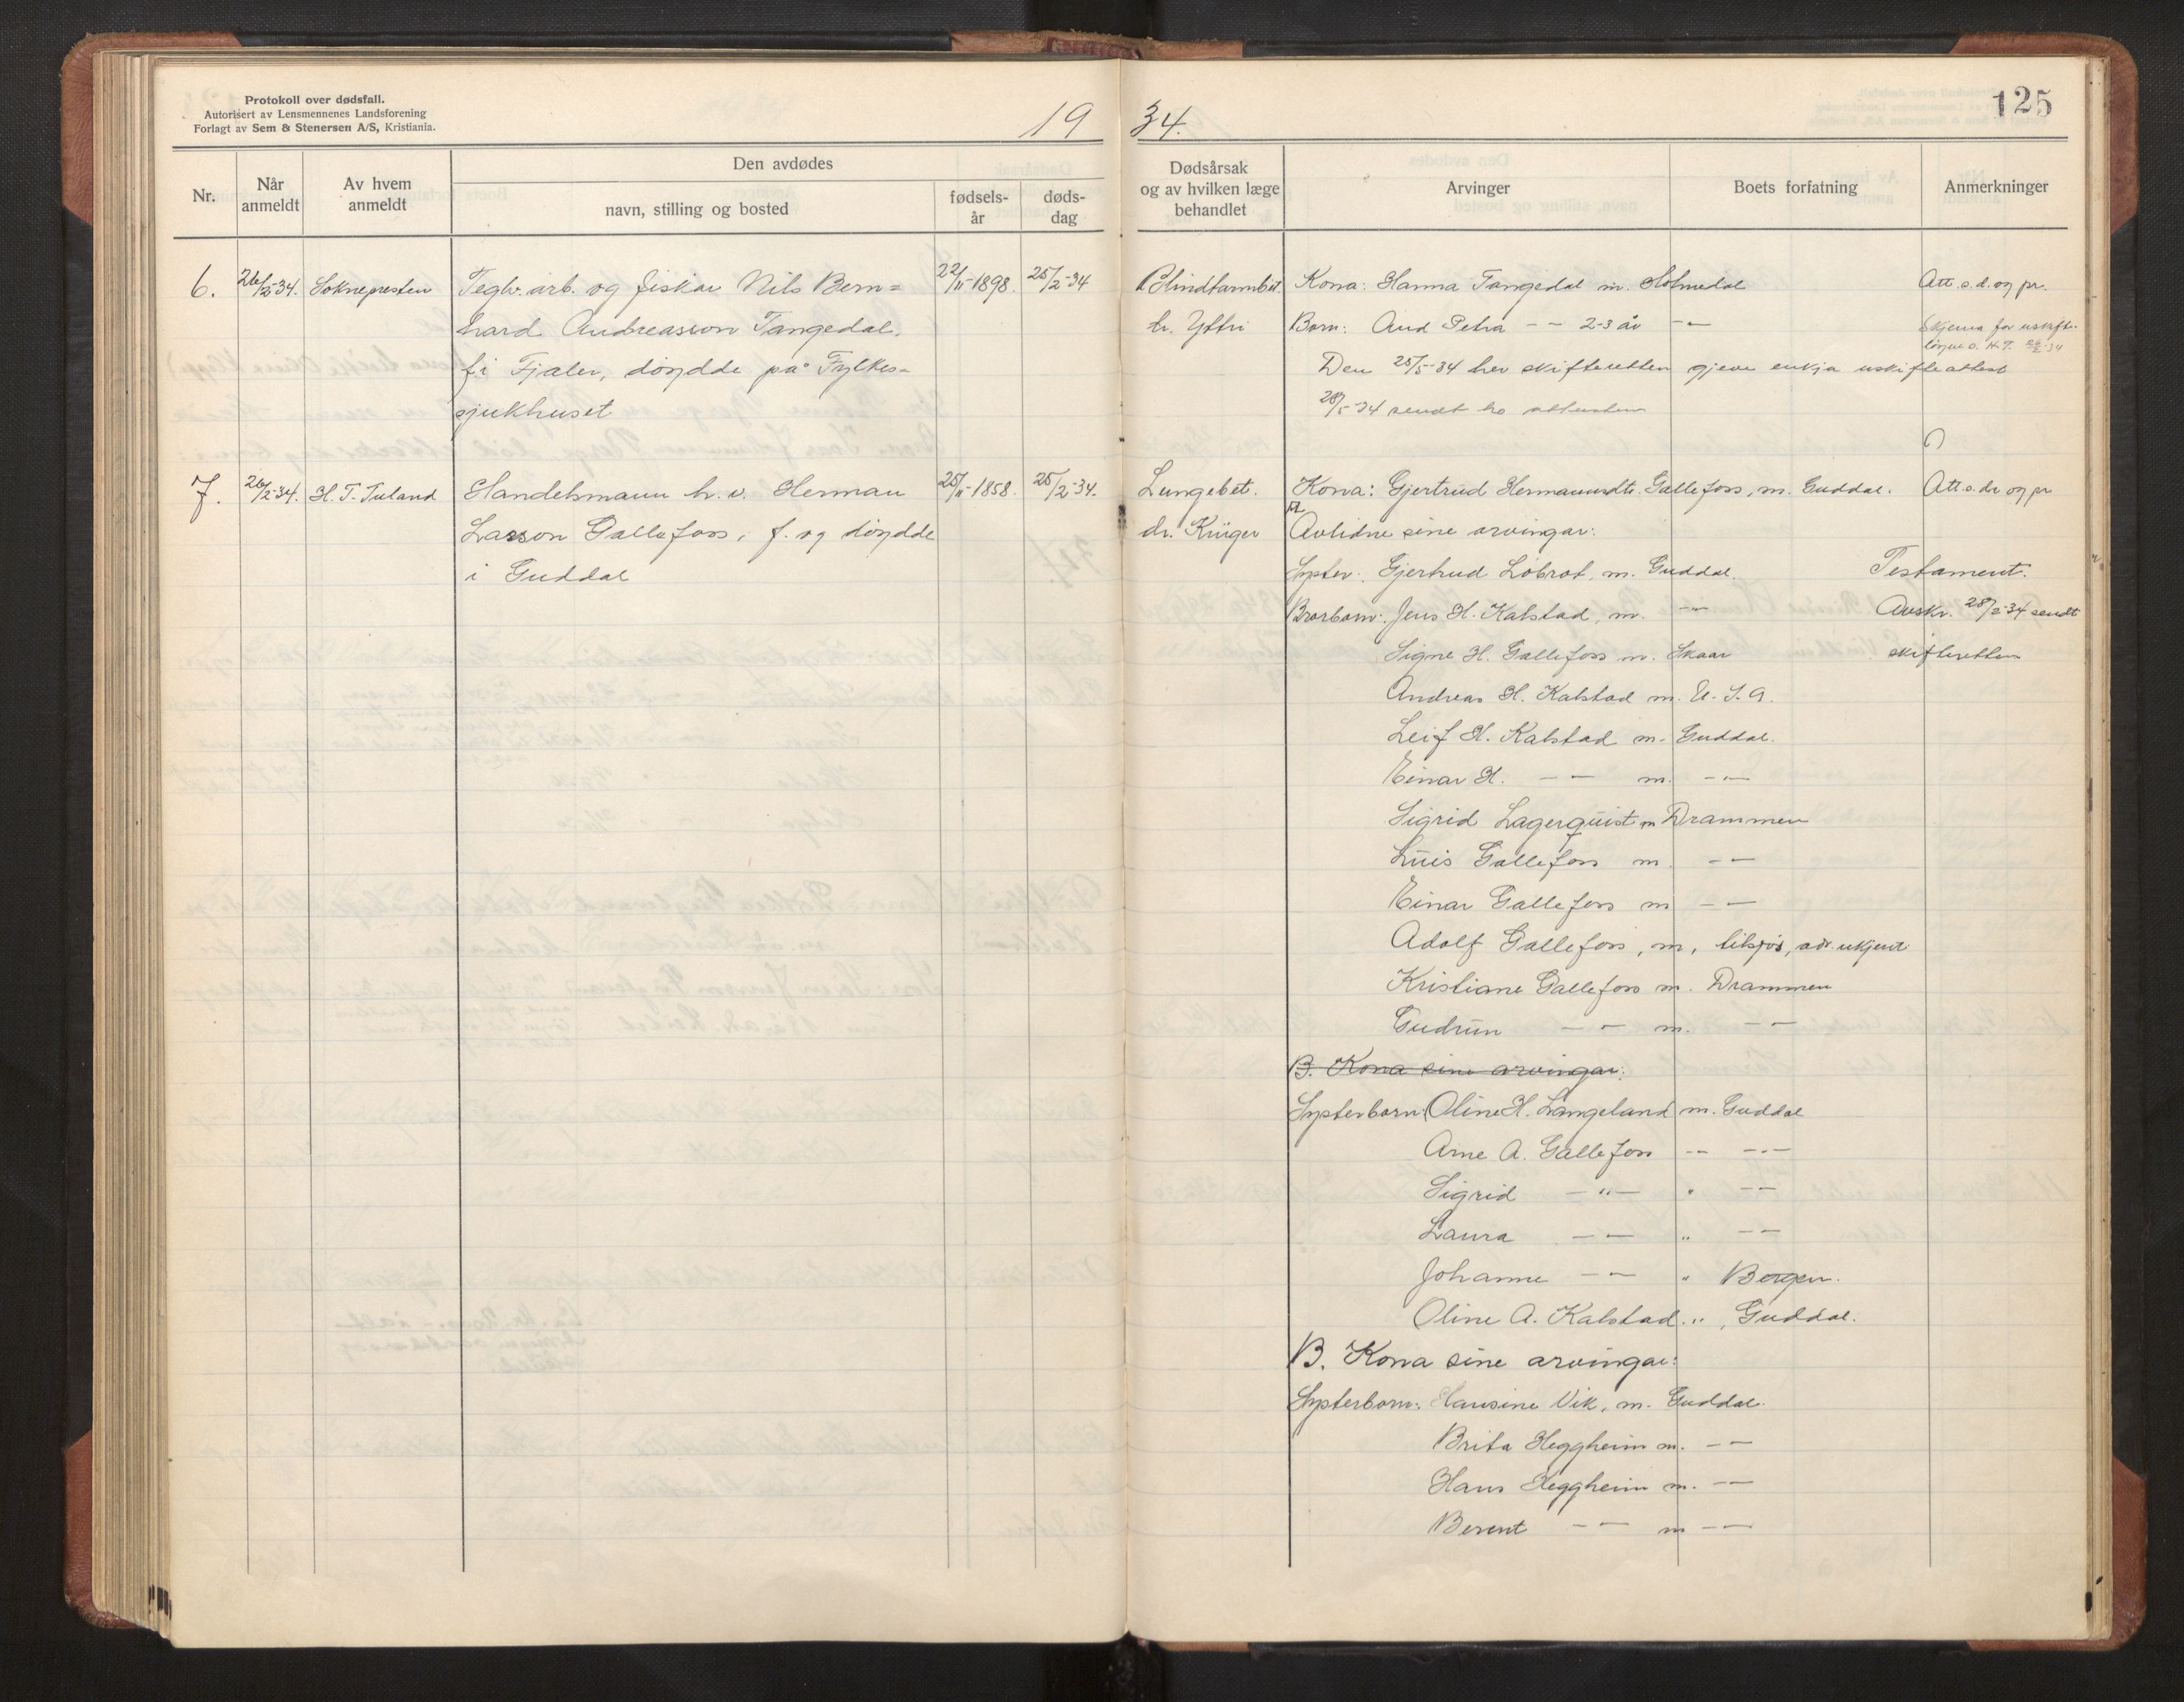 Protokoll over dødsfall.
Autorisert av Lensmennenes Landsforening
Forlagt av Sem & Stenersen A/S, Kristiania.
1934.
125
Nr.
Når anmeldt
Av hvem anmeldt
Den avdødes
navn, stilling og bosted
fødsels-år
døds-dag
Dødsårsak
og av hvilken læge
behandlet
Arvinger
Boets forfatning
Anmerkninger
6. 26/2-34. Soknepresten Teglv. arb. og fiskar Nils Bern=
hard Andreasson Tangedal,
f. i Fjaler, döydde på Fylkes-
sjukhuset
22/11-1898. 25/2-34
Blindtarmbet.
dr. Ytri
Kona: Hanna Tangedal m. Holmedal
Born: Aud Petra - - 2-3 år - -
Den 25/5-34 her skifteretten gjeve enkja uskifteattest
28/5-34 sendt ho attesten
Att. s.d. og pr.
Skjema for uskifte-
7. 26/2-34. H. T. Tuland Handelsmann h. v. Herman
Larson Gallefoss, f. og döydde
i Guddal
25/11-1858. 25/2-34.
Lungebet.
dr. Krüger
Kona: Gjertrud Hermanndtr. Gallefoss, m. Guddal.
A
Avlidne sine arvingar:
Syster: Gjertrud Löbrot, m. Guddal.
Brorborn: Jens H. Kalstad, m. -"-
Signe H. Gallefoss m. Skaar
Andreas H. Kalstad m. U.S.A.
Leif H. Kalstad m. Guddal.
Einar H. - - m. - -
Sigrid Lagerquist m Drammen
Luis Gallefoss m. - -
Einar Gallefoss m - -
Adolf Gallefoss, m, tilsjös, adr. ukjent.
Kristiane Gallefoss m. Drammen
Gudrun - - m. - -
B. Kona sine arvingar:
Systerborn: Oline H. Langeland m. Guddal
Arne A. Gallefoss -- -.-
Sigrid -"- " - -
Laura - - " - -
Johanne - - " Bergen.
Oline A. Kalstad. ", Guddal.
B. Kona sine arvingar:
Systerborn: Hansine Vik, m. Guddal.
Brita Heggheim m. - -
Hans Heggheim m. - -
Berent - - m - -
Att. s.d. og pr
Testament.
Avskr. 28/2-34 sendt
skifteretten